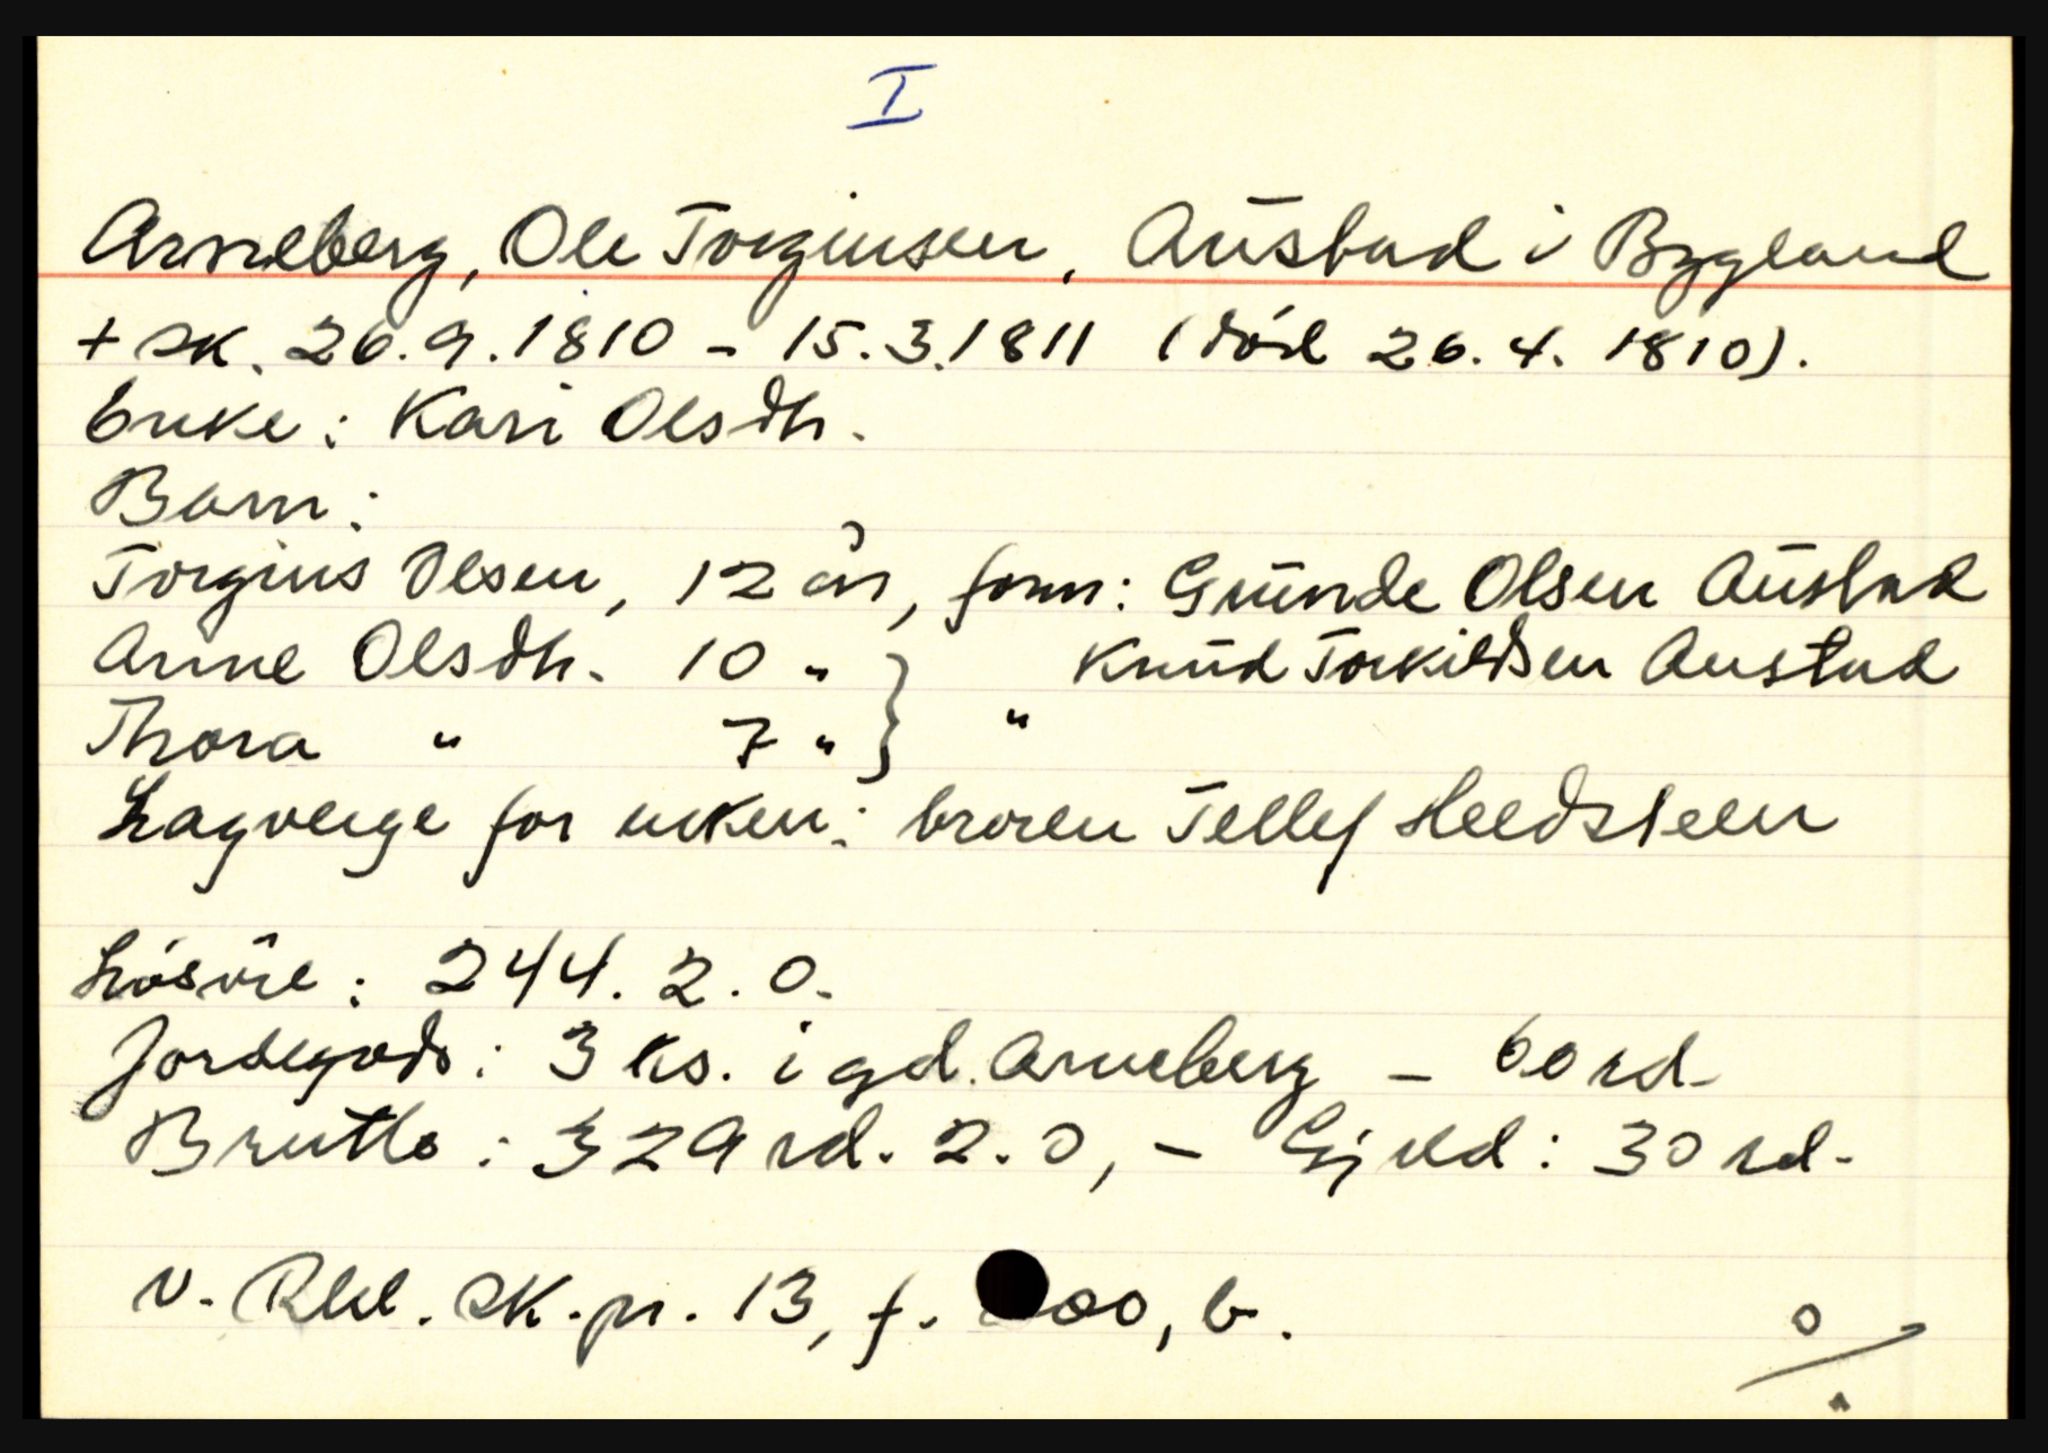 I
Arneberg, Ole Torginsen, Austad i Bygland
+ sk. 26.9.1810 - 15.3.1811 (död 26.4.1810).
Enke: Kari Olsdtr.
Barn:
Torgius Olsen, 12 år, form: Gunde Olsen Austad
Anne Olsdtr. 10 " } Knud Torkildsen Austad
Thora " 7 " } "
Lagverge for enken: broren Tellef Heedsteen
Lösöre: 244. 2. 0.
Jordegods: 3 ks. i gd. Arneberg - 60 rd.
Brutto: 329 rd. 2. 0, - Gjeld: 30 rd.
v. Rbl. sk. pr. 13, f. 00, b.